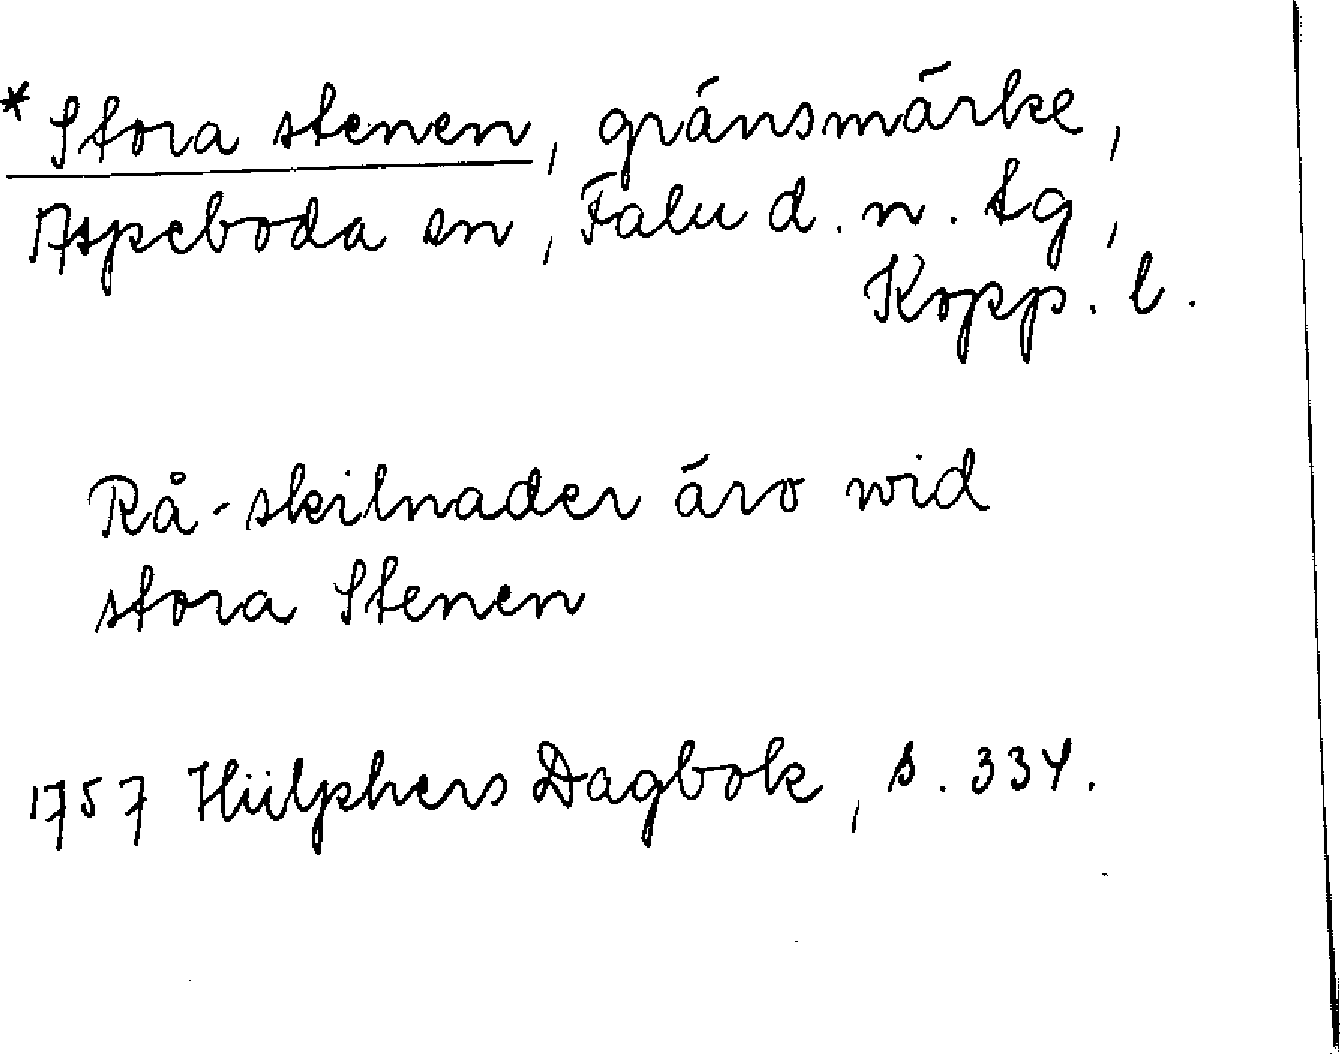 * Stora stenen, gränsmärke,
Aspeboda sn, Falu d. n. tg,
Kopp. l.
Rå-skilnader äro wid
stora Stenen
1757 Hülphers Dagbok, s. 334.